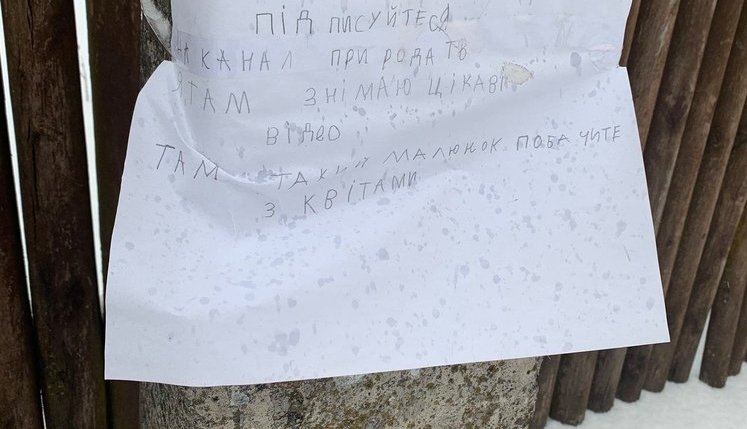 ПІД ПИСУЙТЕСЬ
НА КАНАЛ ПРИ РОДА ТВ
Я ТАМ ЗНІМАЮ ЦІКАВІ
ВІДЕО
ТАМ ТАКИЙ МАЛЮНОК ПОБАЧИТЕ
З КВІТАМИ